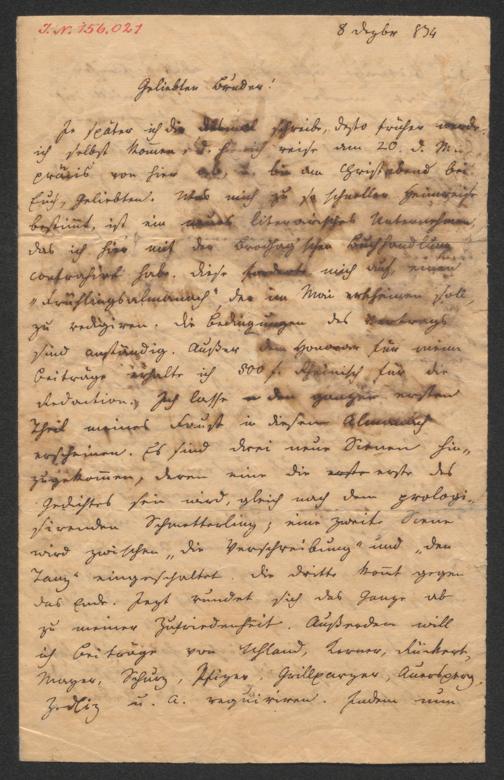 J. N. 156.021
8 Dezbr 834
Geliebter Bruder!
Je später ich dir diesmal schreibe, desto früher werde
ich selbst kommen, d. h. ich reise am 20. d. M.
präcis von hier ab, u. bin am Christabend bei
Euch, Geliebten. Was mich zu so schneller Heimreise
bestimmt, ist ein neues literarisches Unternehmen,
das ich hier mit der Brodhag'schen Buchhandlung
contrahirt habe. Diese forderte mich auf, einen
„Frühlingsalmanach", der im Mai erscheinen soll,
zu redigiren. Die Bedingungen des Vertrags
sind anständig. Außer dem Honorar für meine
Beiträge erhalte ich 800 f. Rheinisch für die
Redaction. Ich lasse den ganzen ersten
Theil meines Faust in diesem Almanach
erscheinen. Es sind drei neue Scenen hin-
zugekommen, deren eine die erste des
Gedichtes sein wird, gleich nach dem prologi-
sirenden Schmetterling; eine zweite Scene
wird zwischen „die Verschreibung" und „den
Tanz" eingeschaltet. Die dritte kommt gegen
das Ende. Jezt rundet sich das Ganze ab
zu meiner Zufriedenheit. Außerdem will
ich Beiträge von Uhland, Kerner, Rückert,
Mayer, Schurz, Pfizer, Grillparzer, Auersperg,
Zedliz u. A. requiriren. Indem nun